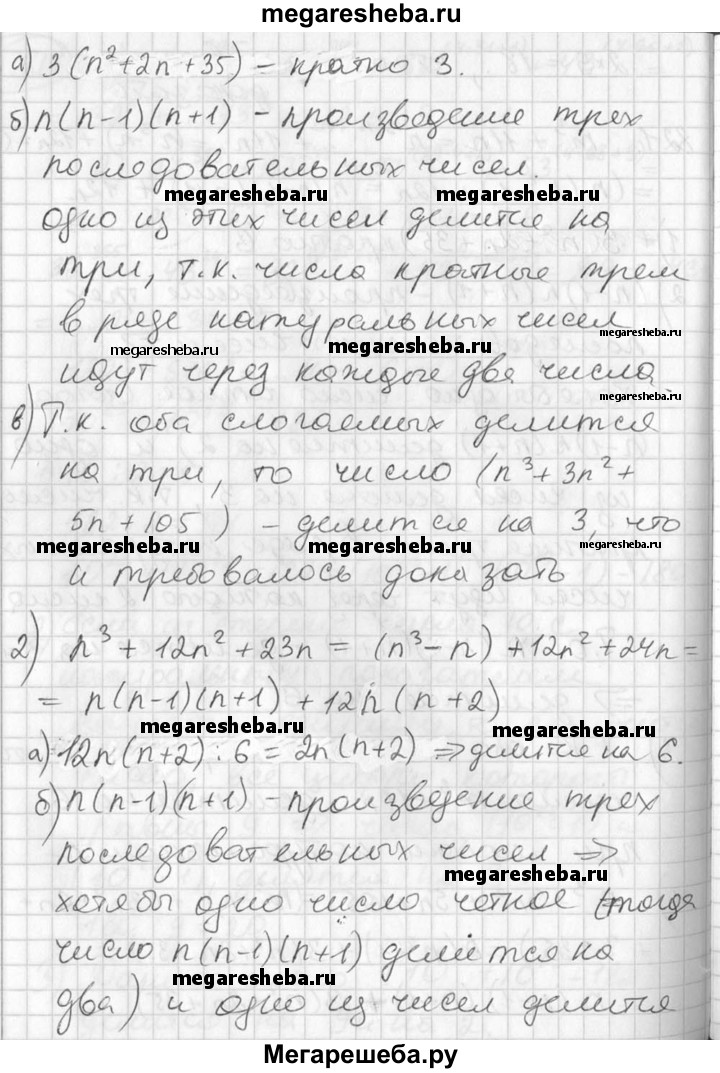 megaresheba.ru
а) 3(n²+2n+35) – кратно 3.
б) n(n-1)(n+1) – произведение трех
последовательных чисел.
megaresheba.ru megaresheba.ru
одно из этих чисел делится на
три, т.к. числа кратные трем
в ряде натуральных чисел
megaresheba.ru megaresheba.ru megaresheba.ru
идут через каждые два числа
megaresheba.ru
в) Т.к. оба слогаемых делится
на три, то число (n³+3n²+
5n+105) – делится на 3, что
megaresheba.ru megaresheba.ru megaresheba.ru
и требовалось доказать
2) n³+12n²+23n = (n³-n)+12n²+24n=
= n(n-1)(n+1)+12n(n+2)
megaresheba.ru megaresheba.ru
а) 12n(n+2):6=2n(n+2) ⇒ делится на 6.
б) n(n-1)(n+1) – произведение трех
последовательных чисел ⇒
megaresheba.ru
хотябы одно число четное (тогда
число n(n-1)(n+1) делится на
megaresheba.ru
два) и одно из чисел делится
Мегарешеба.ру